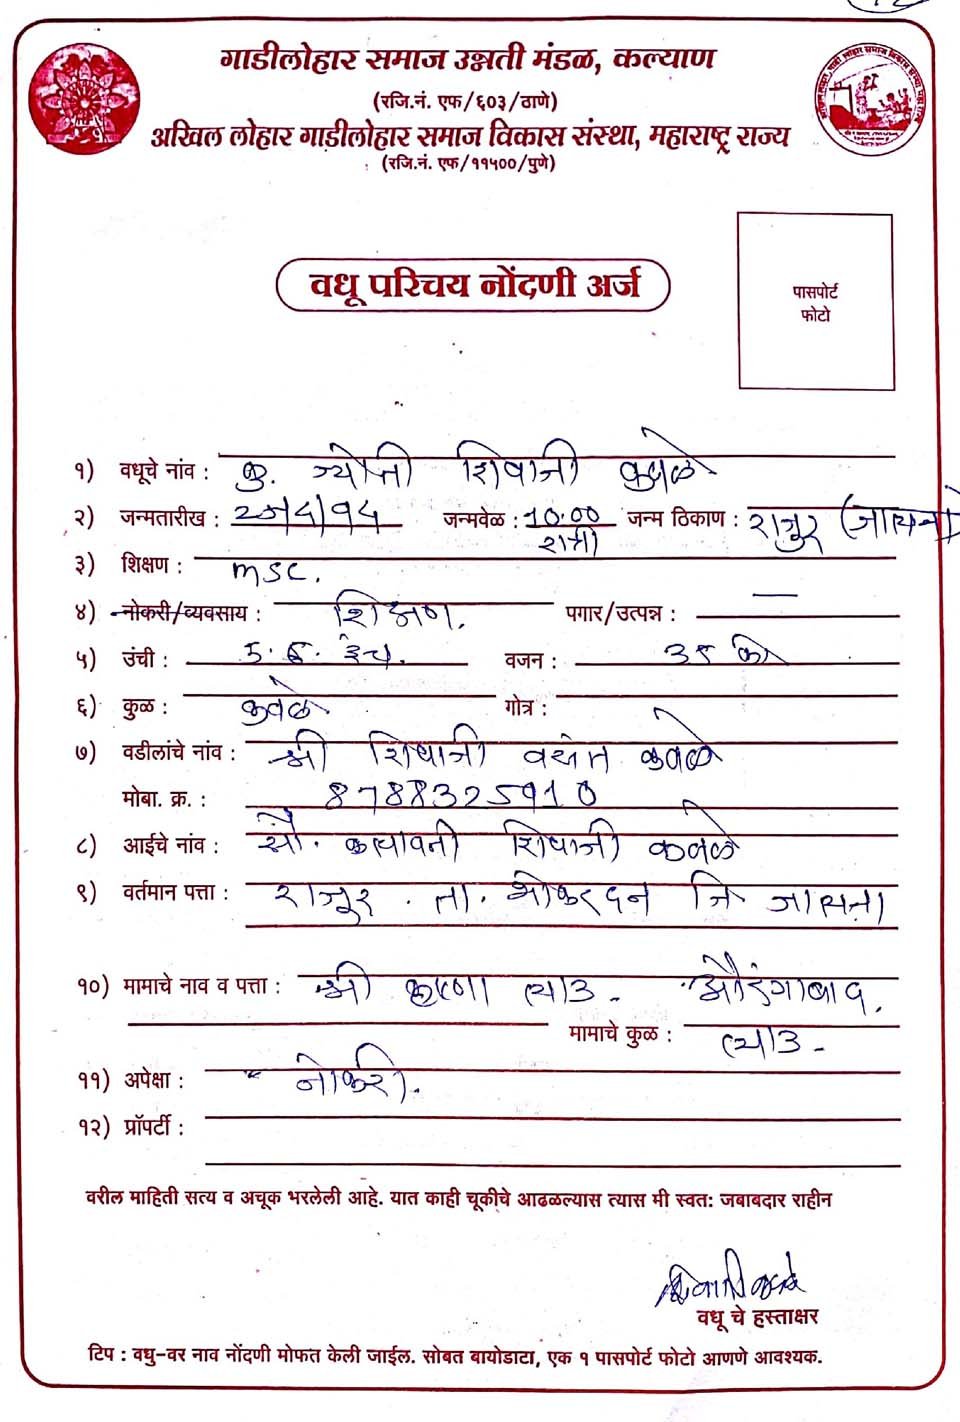 गाडीलोहार समाज उन्नती मंडळ, कल्याण
(रजि.नं. एफ/६०३/ठाणे)
अखिल लोहार गाडीलोहार समाज विकास संस्था, महाराष्ट्र राज्य
(रजि.नं. एफ/११५००/पुणे)
वधू परिचय नोंदणी अर्ज
पासपोर्ट
फोटो
१) वधूचे नांव : कु. ज्योती शिवाजी कवळे
२) जन्मतारीख : जन्मवेळ : 10.00 रात्री जन्म ठिकाण : राजूर (जालना)
३) शिक्षण : msc.
४) नोकरी/व्यवसाय : शिक्षण. पगार/उत्पन्न : —
५) उंची : 5.6. इंच. वजन :
६) कुळ : कवळे गोत्र :
७) वडीलांचे नांव : श्री शिवाजी वसंत कवळे
मोबा. क्र. : 8788325910
८) आईचे नांव : सौ. कलावती शिवाजी कवळे
९) वर्तमान पत्ता : राजूर. ता. भोकरदन जि जालना
१०) मामाचे नाव व पत्ता : श्री कृष्णा औरंगाबाद.
मामाचे कुळ :
११) अपेक्षा : नोकरी.
१२) प्रॉपर्टी :
वरील माहिती सत्य व अचूक भरलेली आहे. यात काही चूकीचे आढळल्यास त्यास मी स्वत: जबाबदार राहीन
वधू चे हस्ताक्षर
टिप : वधु-वर नाव नोंदणी मोफत केली जाईल. सोबत बायोडाटा, एक १ पासपोर्ट फोटो आणणे आवश्यक.